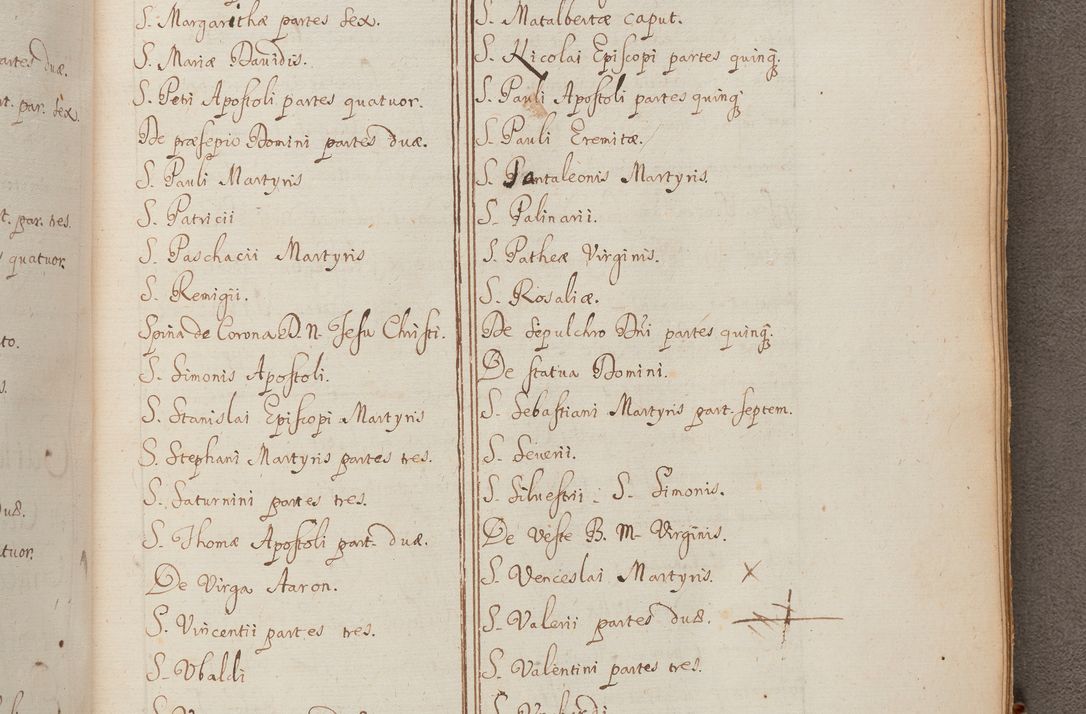 artes duæ.
rt. par. sex.
t. par. tres.
quatuor.
to.
s.
duæ.
tuor.
S. Margarithæ partes sex.
S. Mariæ Dauidis.
S. Petri Apostoli partes quatuor.
De præsepio Domini partes duæ.
S. Pauli Martyris
S. Patricii
S. Paschacii Martyris
S. Remigii.
Spina de Corona D. N. Jesu Christi.
S. Simonis Apostoli.
S. Stanislai Episcopi Martyris
S. Stephani Martyris partes tres.
S. Saturnini partes tres.
S. Thomæ Apostoli part. duæ.
De Virga Aaron.
S. Vincentii partes tres.
S. Vbaldi
S. Matalbertæ caput.
S. Nicolai Episcopi partes quinq;
S. Pauli Apostoli partes quinq;
S. Pauli Eremitæ.
S. Pantaleonis Martyris.
S. Palinarii.
S. Patheæ Virginis.
S. Rosaliæ.
De Sepulchro Dni partes quinq;
De statua Domini.
S. Sebastiani Martyris part. septem.
S. Seuerii.
S. Siluestrii. S. Simonis.
De Veste B. M. Virginis.
S. Venceslai Martyris. x
S. Valerii partes duæ.
S. Valentini partes tres.